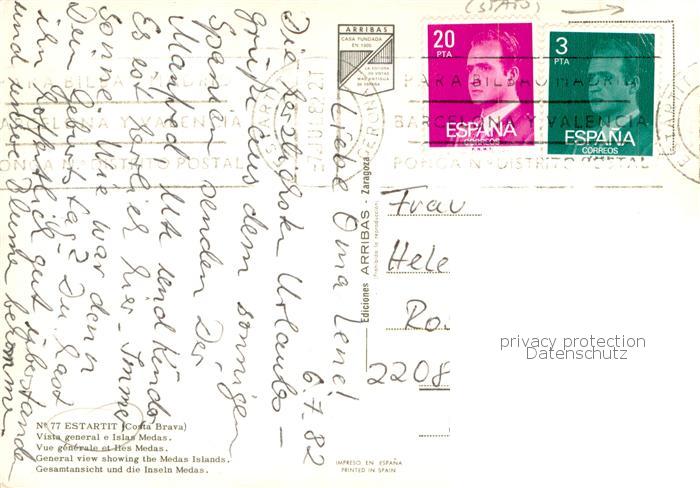 (STATO)
ARRIBAS
CASA FUNDADA
EN 1905
20
PTA
ESPAÑA
CORREOS
3
PTA
ESPAÑA
CORREOS
PARA BILBAO MADRID
BARCELONA Y VALENCIA
PONGA Nº DISTRITO POSTAL
6.7.82
Liebe Oma Lene!
Die herzlichsten Urlaubs-
grüße aus dem sonnigen
Spanien senden Dir
Manfred, Ute und Kinder
Es ist herrlich hier - Immer
Sonne. Wie war denn
Dein Geburtstag? Du hast
ihn hoffentlich gut überstanden
und
bekommen
Ediciones ARRIBAS - Zaragoza
Prohibida la reproducción
Frau
Hele
Ro
2208
privacy protection
Datenschutz
Nº 77 ESTARTIT (Costa Brava)
Vista general e Islas Medas.
Vue générale et Iles Medas.
General view showing the Medas Islands.
Gesamtansicht und die Inseln Medas.
IMPRESO EN ESPAÑA
PRINTED IN SPAIN